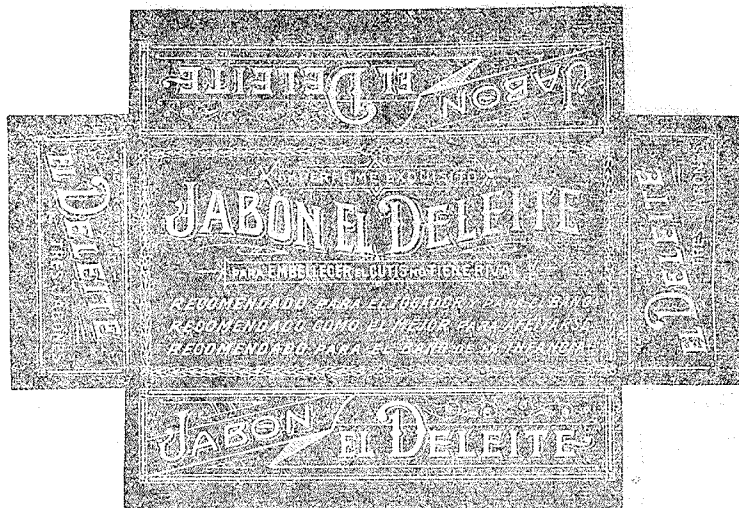 JABON EL DELEITE
EL DELEITE
PERFUME EXQUISITO
JABON EL DELEITE
PARA EMBELLECER EL CUTIS NO TIENE RIVAL
RECOMENDADO PARA EL TOCADOR Y PARA EL BAÑO
RECOMENDADO COMO EL MEJOR PARA AFEITARSE
RECOMENDADO PARA EL BAÑO DE
EL DELEITE
JABON EL DELEITE